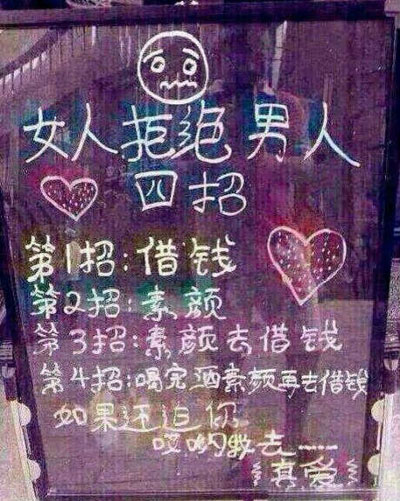 女人拒绝男人
四招
第1招:借钱
第2招:素颜
第3招:素颜去借钱
第4招:喝完酒素颜再去借钱
如果还追你
哎哟我去——
真爱